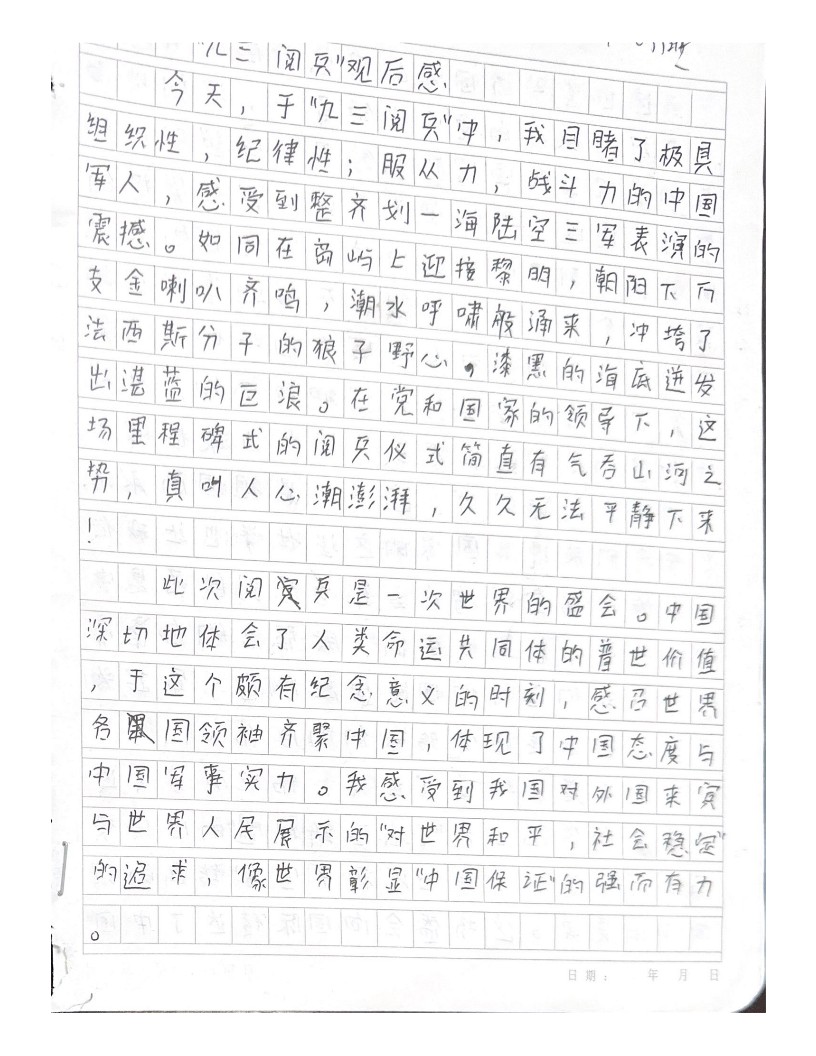 "九三阅兵"观后感
今天，于"九三阅兵"中，我目睹了极具
组织性，纪律性；服从力，战斗力的中国
军人，感受到整齐划一海陆空三军表演的
震撼。如同在岛屿上迎接黎明，朝阳下万
支金喇叭齐鸣，潮水呼啸般涌来，冲垮了
法西斯分子的狼子野心。漆黑的海底迸发
出湛蓝的巨浪。在党和国家的领导下，这
场里程碑式的阅兵仪式简直有气吞山河之
势，真叫人心潮澎湃，久久无法平静下来
！
此次阅兵是一次世界的盛会。中国
深切地体会了人类命运共同体的普世价值
，于这个颇有纪念意义的时刻，感召世界
各国领袖齐聚中国，体现了中国态度与
中国军事实力。我感受到我国对外国来宾
与世界人民展示的"对世界和平，社会稳定"
的追求，像世界彰显"中国保证"的强而有力
。
日期： 年 月 日